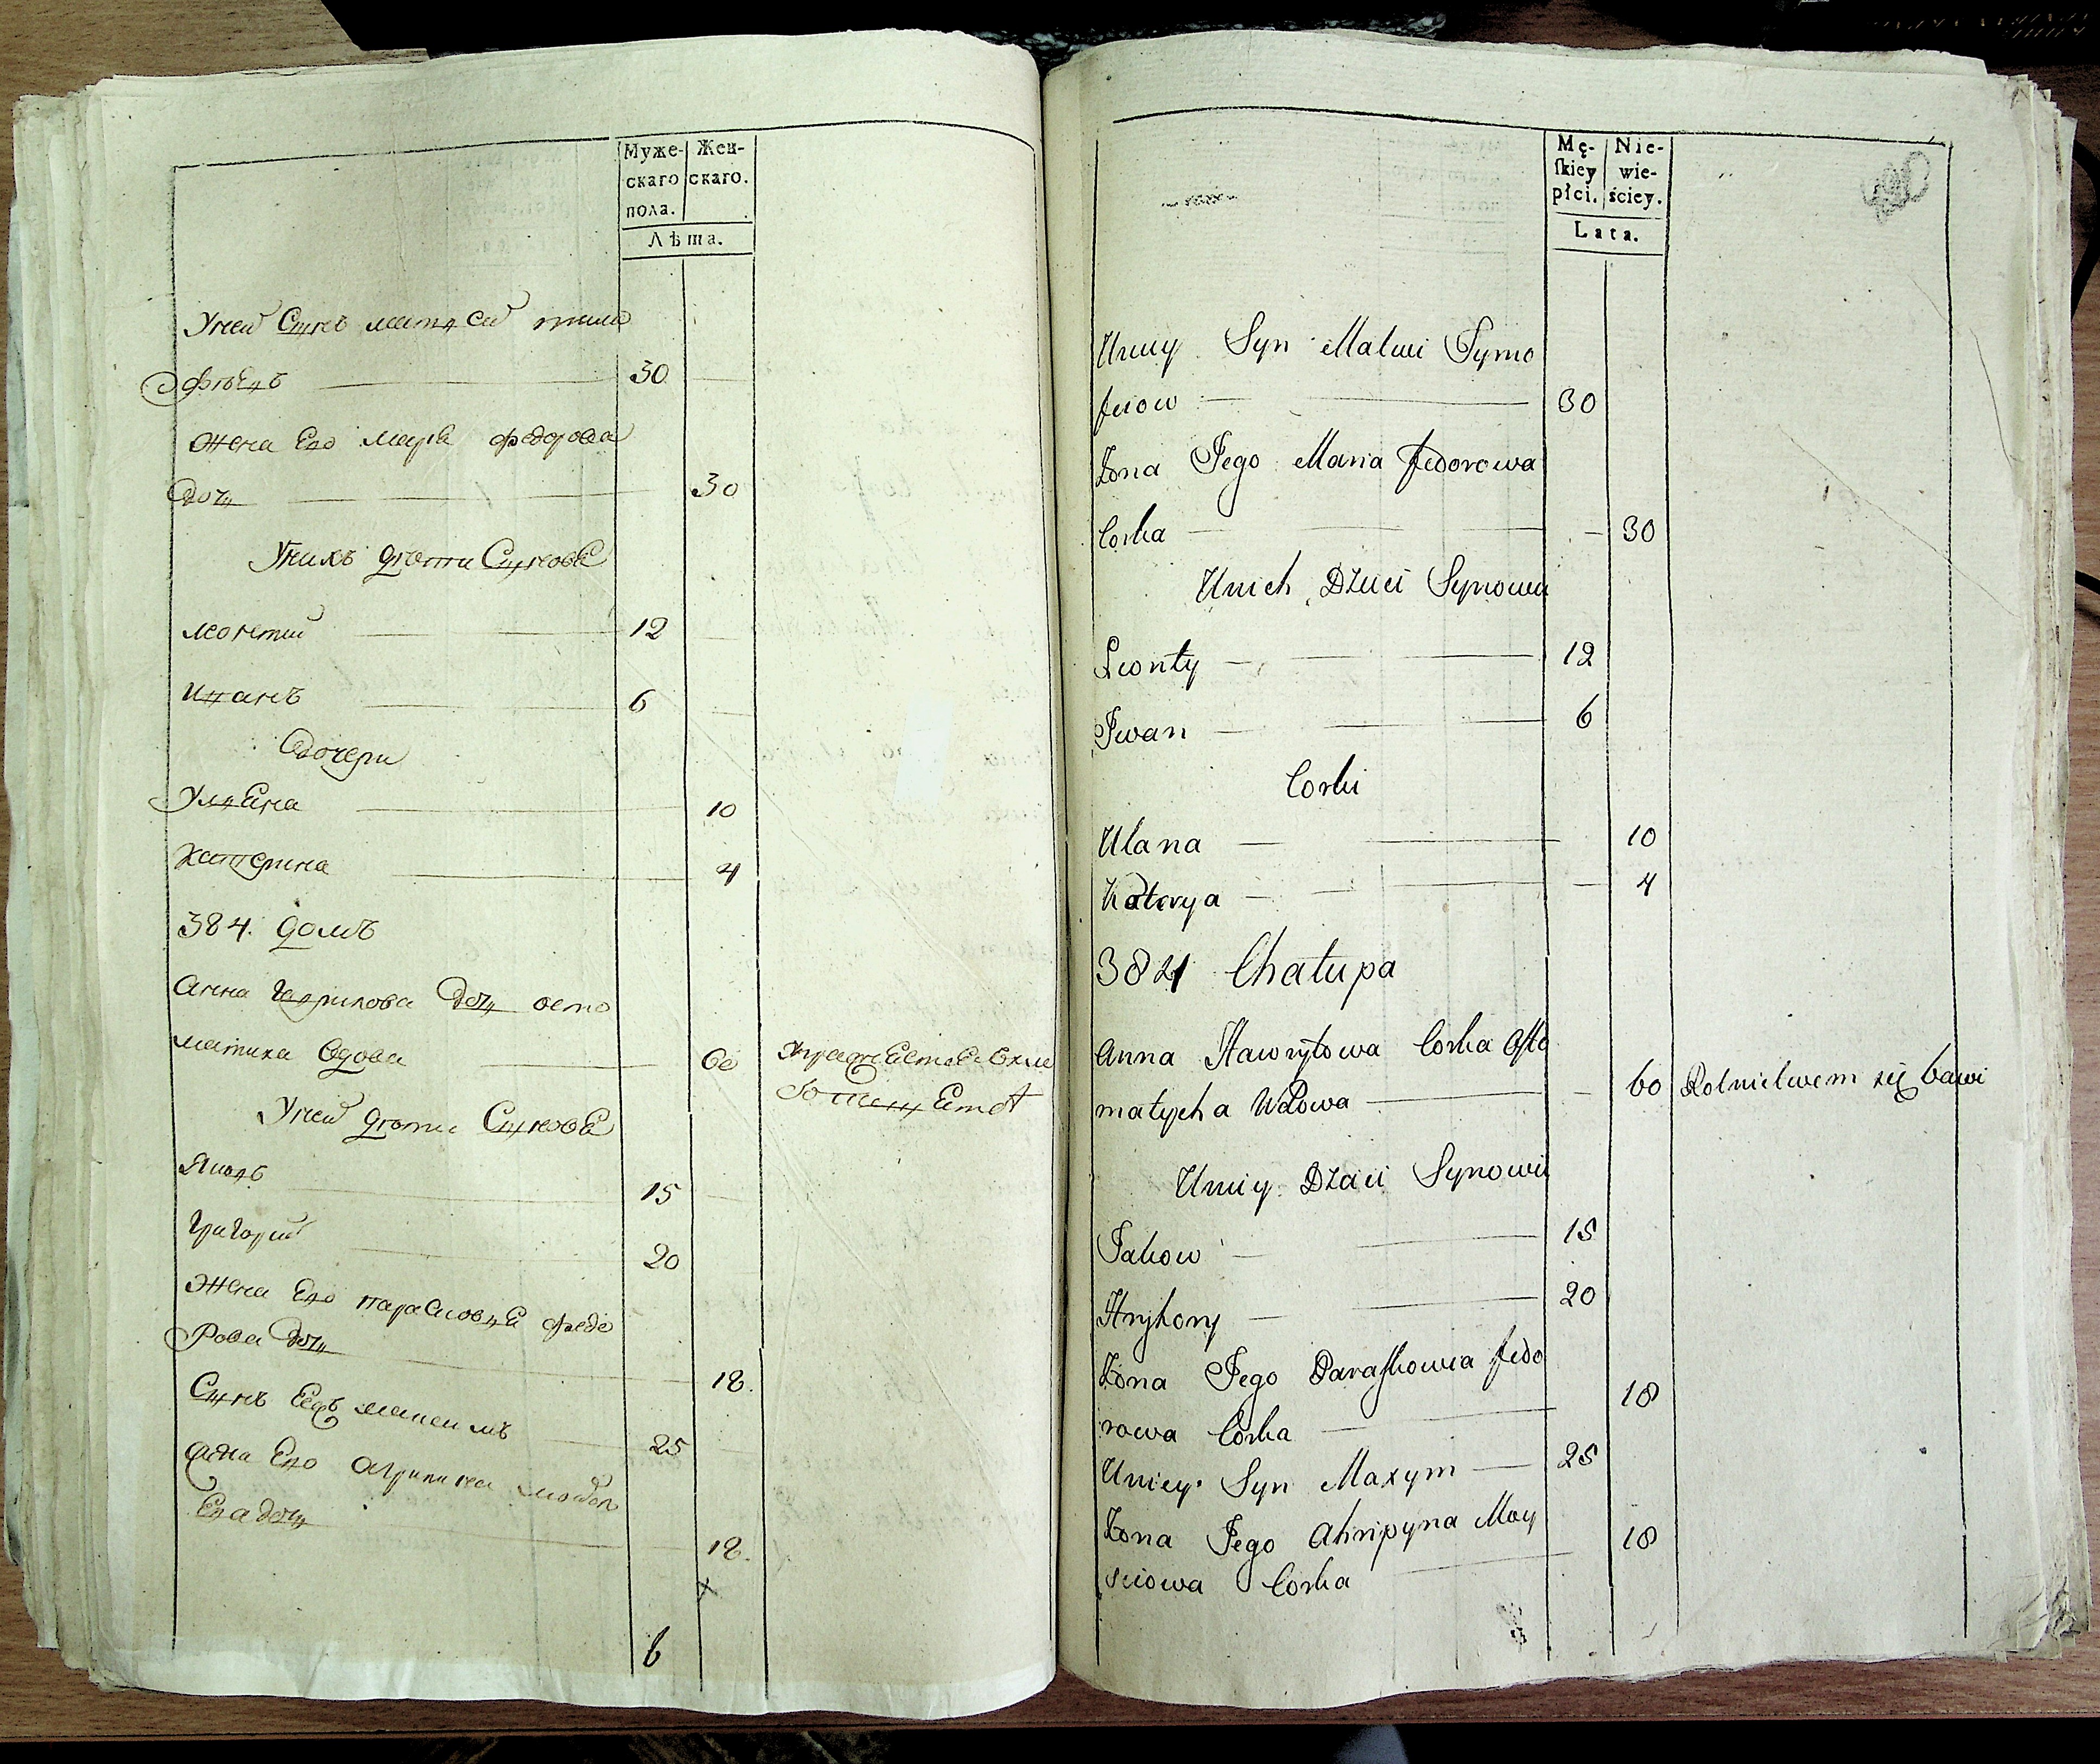 Муже-
скаго
пола.
Жен-
скаго.
Лѣта.
Унеи Сынъ матвей тимо
фѣевъ 30
Жена Его марья федорова
дочь 30
Унихъ дѣти Сыновя
леонтий 12
Иванъ 6
дочери
Ульяна 10
катерина 4
384. домъ
Анна Гаврилова дочь осто
матиха вдова 60
Унеи дѣти Сыновя
Яковъ 15
Григорий 20
Жена Его парасковья федо
рова дочь 18.
Сынъ максимъ 25
Жена Его Агрипина
дочь 18.
6
Mę-
skiey
płci.
Nie-
wie-
ściey.
Lata.
Uniey Syn Matwi Tymo
fiiow 30
Żona Jego Maria fedorowa
Corka 30
Unich Dzieci Synowie
Leonty 12
Iwan 6
Corki
Ulana 10
Katerya 4
384 Chałupa
Anna Hawryłowa Corka Osto
matycha Wdowa 60 Rolnictwem się bawi
Uniey Dzieci Synowie
Jakow 15
Hryhory 20
Żona Jego Paraskowia fedo
rowa Corka 18
Uniey Syn Maxym 25
Żona Jego Ahripyna Moy
sieiowa Corka 18